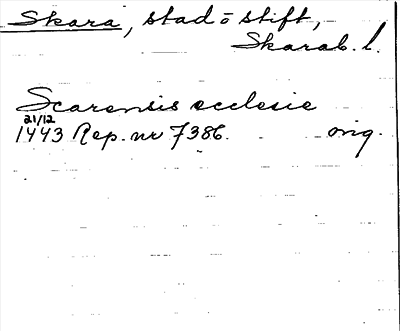 Skara, stad o stift,
Skarab. l.
Scarensis ecclesie
21/12
1443 Rep. nr 7386. orig.